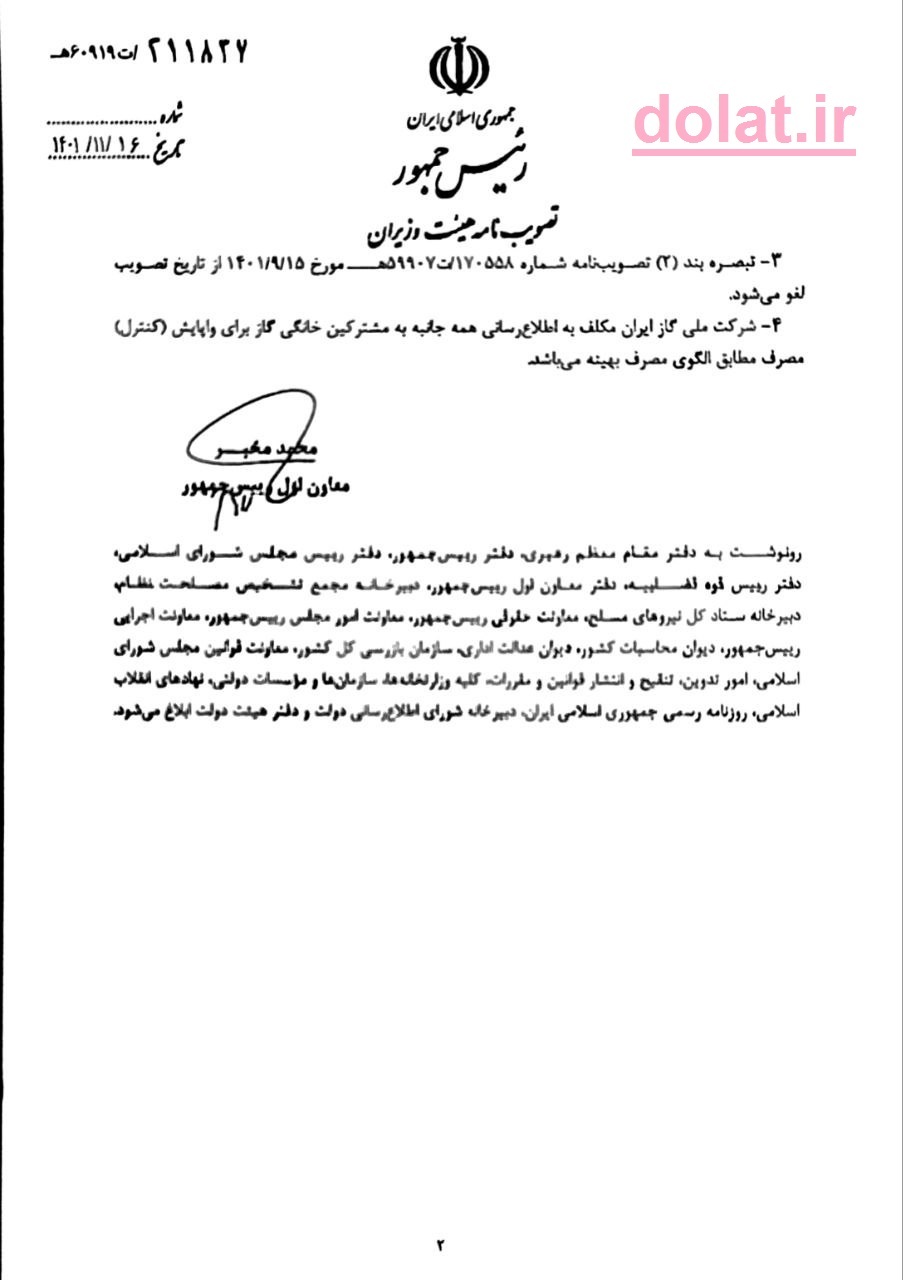 ۲۱۱۸۲۷ /ت۶۰۹۱۹هـ
dolat.ir
جمهوری اسلامی ایران
شماره
رئیس جمهور
تاریخ ۱۴۰۱/۱۱/۱۶
تصویب نامه هیئت وزیران
۳- تبصره بند (۲) تصویب‌نامه شماره ۱۷۰۵۵۸/ت۵۹۹۰۷هـ مورخ ۱۴۰۱/۹/۱۵ از تاریخ تصویب
لغو می‌شود.
۴- شرکت ملی گاز ایران مکلف به اطلاع‌رسانی همه جانبه به مشترکین خانگی گاز برای واپایش (کنترل)
مصرف مطابق الگوی مصرف بهینه می‌باشد.
محمد مخبر
معاون اول رییس‌جمهور
رونوشت به دفتر مقام معظم رهبری، دفتر رییس‌جمهور، دفتر رییس مجلس شورای اسلامی،
دفتر رییس قوه قضاییه، دفتر معاون اول رییس‌جمهور، دبیرخانه مجمع تشخیص مصلحت نظام،
دبیرخانه ستاد کل نیروهای مسلح، معاونت حقوقی رییس‌جمهور، معاونت امور مجلس رییس‌جمهور، معاونت اجرایی
رییس‌جمهور، دیوان محاسبات کشور، دیوان عدالت اداری، سازمان بازرسی کل کشور، معاونت قوانین مجلس شورای
اسلامی، امور تدوین، تنقیح و انتشار قوانین و مقررات، کلیه وزارتخانه‌ها، سازمان‌ها و مؤسسات دولتی، نهادهای انقلاب
اسلامی، روزنامه رسمی جمهوری اسلامی ایران، دبیرخانه شورای اطلاع‌رسانی دولت و دفتر هیئت دولت ابلاغ می‌شود.
۲